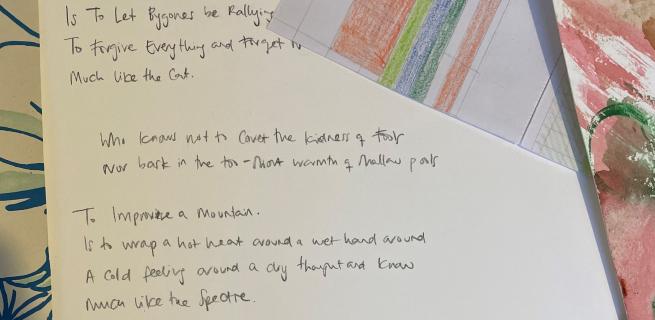 Is To Let Bygones be Rallying
To Forgive Everything and Forget
Much like the Cat.
Who knows not to Covet the kindness of Fools
Nor bask in the too-short warmth of shallow pools
To Improvise a Mountain.
Is to wrap a hot heat around a wet hand around
A cold feeling around a dry thought and know
Much like the Spectre.